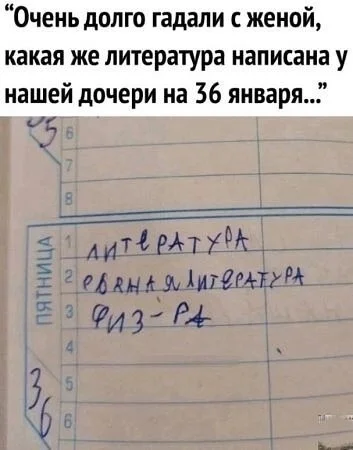 “Очень долго гадали с женой,
какая же литература написана у
нашей дочери на 36 января...”
35
6
7
8
ПЯТНИЦА
1 ЛИТЕРАТУРА
2 РВАНАЯ ЛИТЕРАТУРА
3 ФИЗ-РА
4
36
5
6